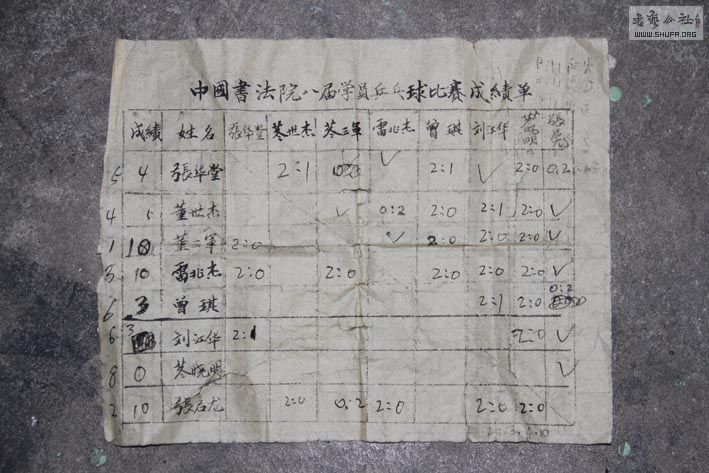 書藝公社
WWW.SHUFA.ORG
中國書法院八届学員乒乓球比赛成績单
成績 姓名 張华堂 董世杰 董三軍 雷兆杰 曾琪 刘江华
5 4 張华堂 2:1 ✓ 2:1 ✓ 2:0 0:2
4 董世杰 ✓ 0:2 2:0 2:1 2:0 ✓
1 10 董三軍 2:0 ✓ 2:0 2:0 2:0 ✓
3 10 雷兆杰 2:0 2:0 2:0 2:0 2:0 ✓
6 3 曾琪 2:1 2:0 0:2
6 3 刘江华 2:1 2:0 ✓
8 0 董晓明 ✓
2 10 張启龙 2:0 0:2 2:0 2:0 2:0